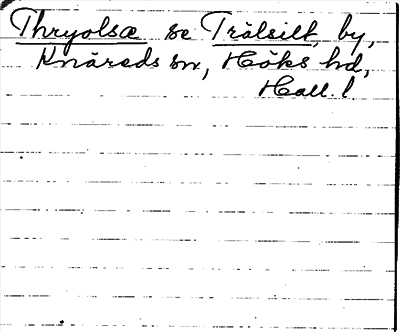 Thryolsæ se Trälsilt, by,
Knäreds sn, Höks hd,
Hall. l.